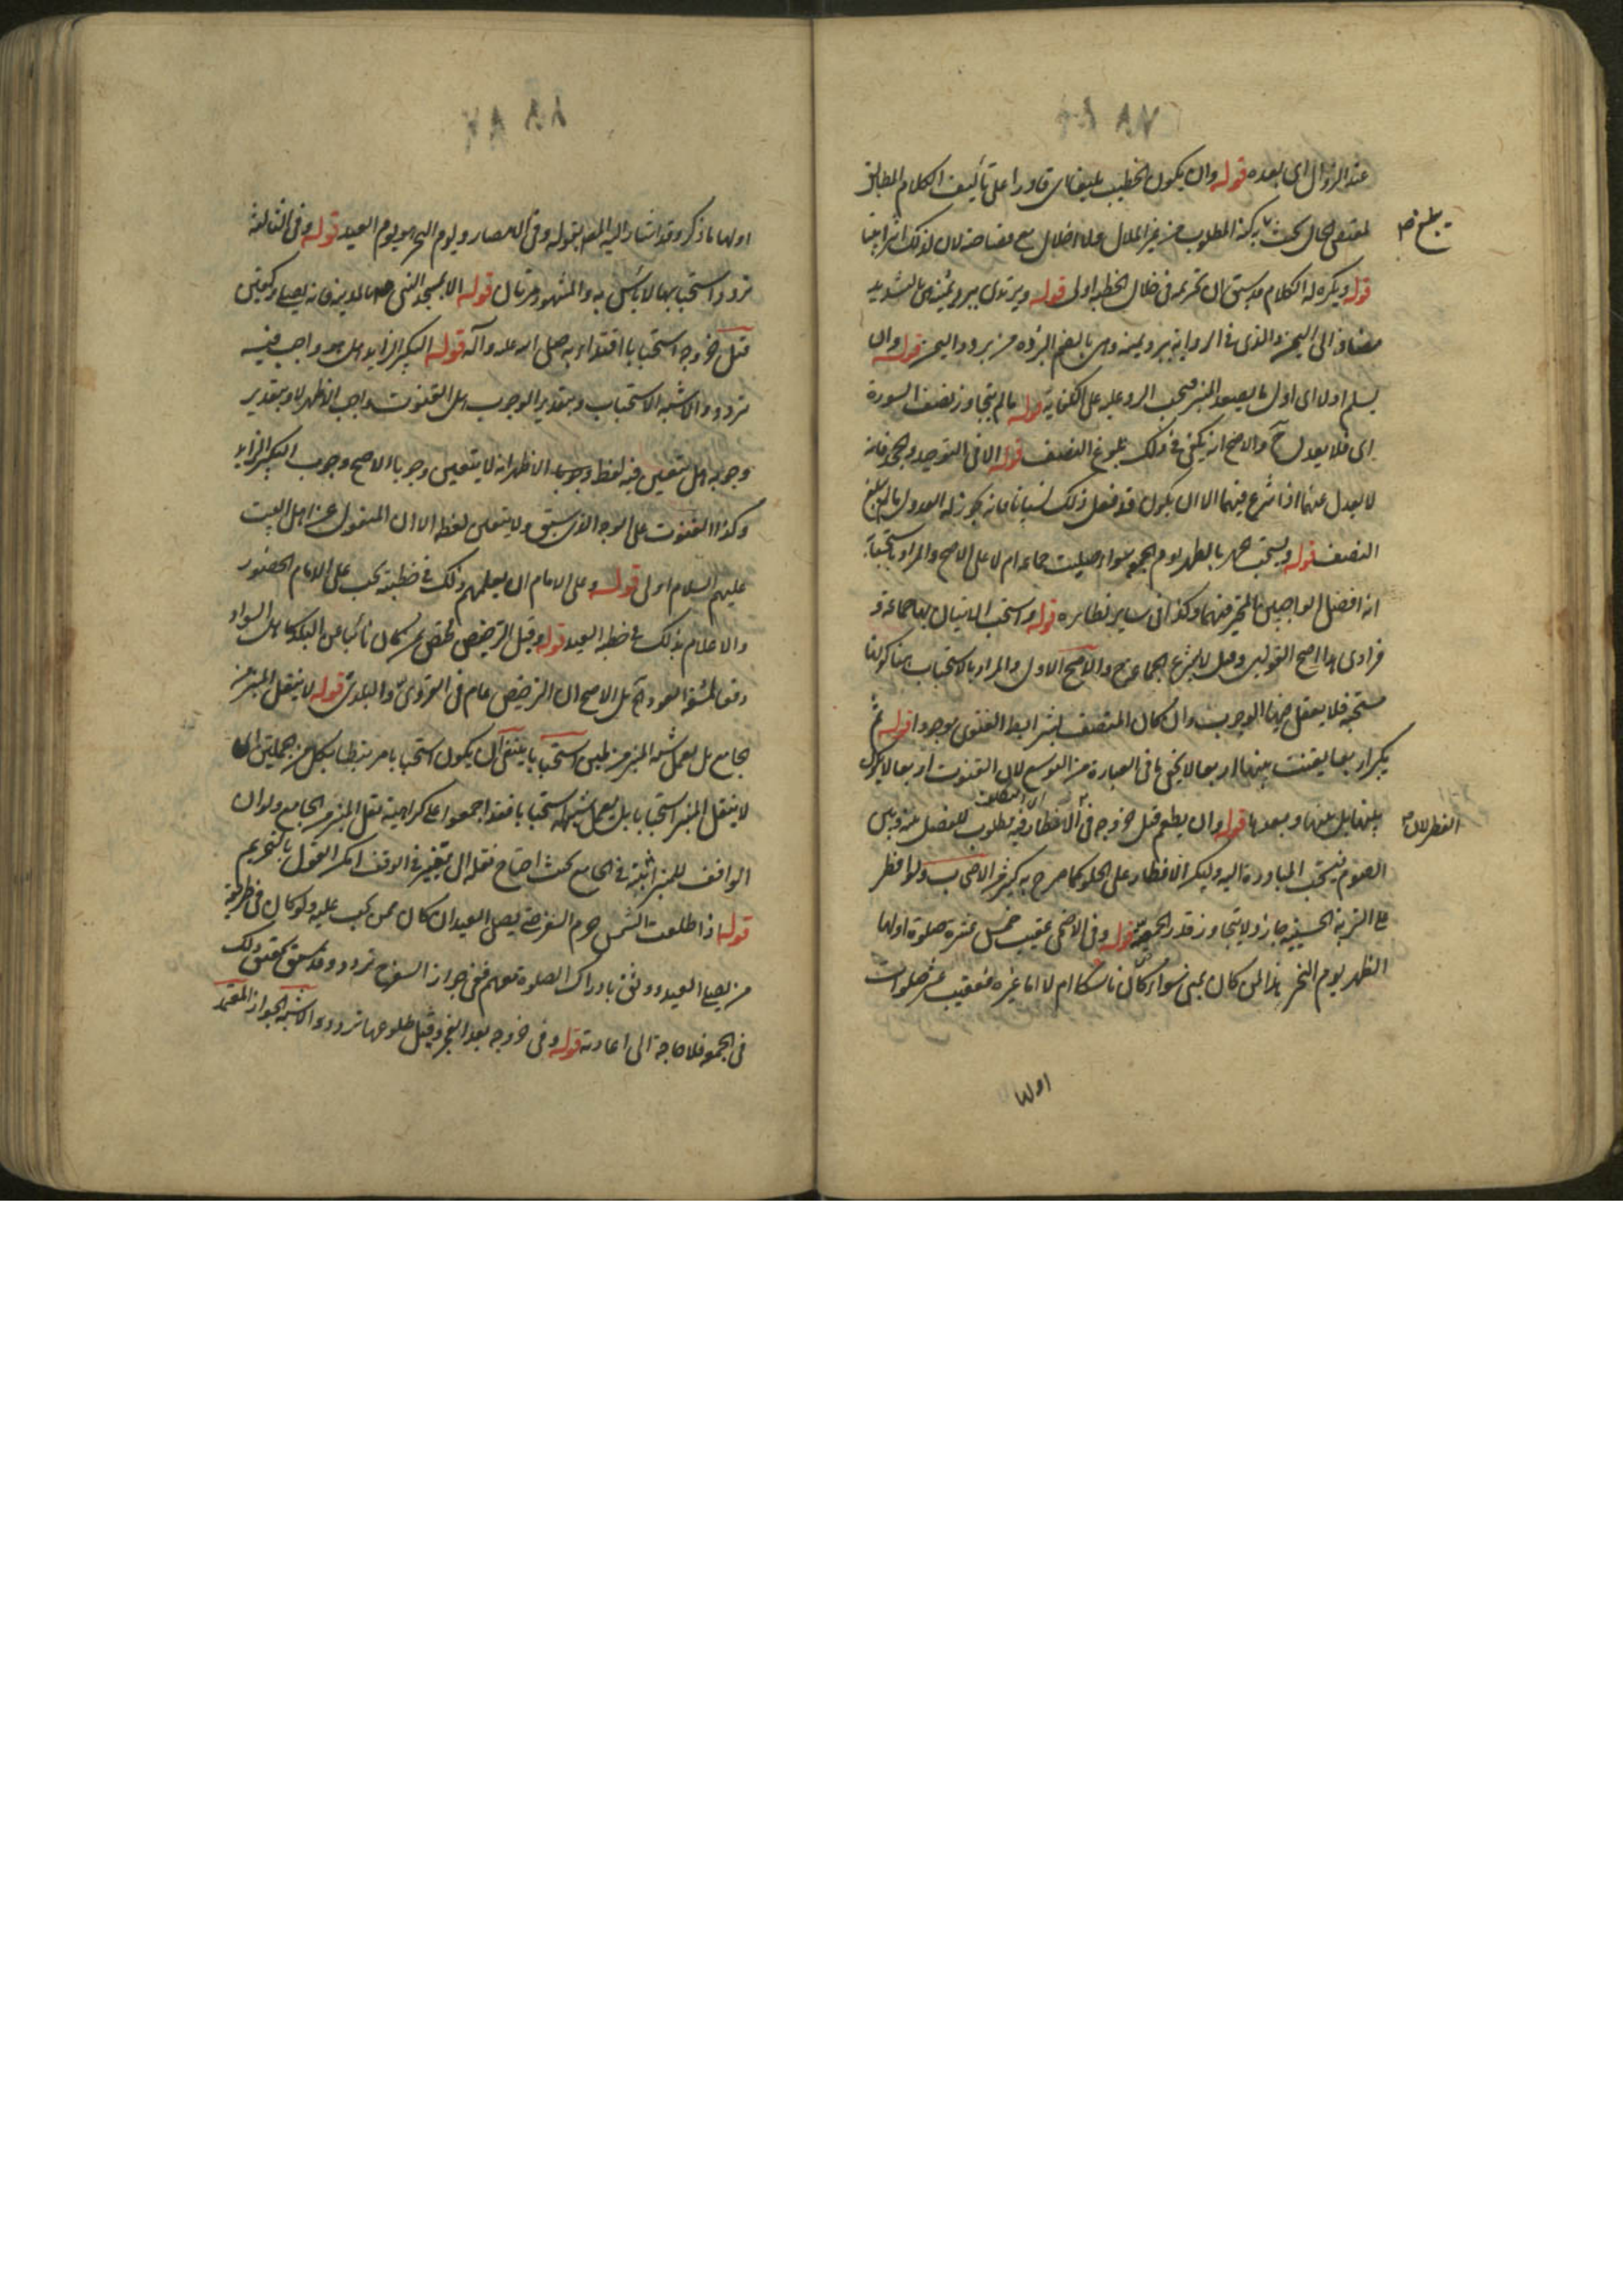 عند الزوال اى بعده قوله وان يكون الخطيب بليغا اى قادرا على تأليف الكلام المطابق
لمقتضى الحال من غير املال ولا اخلال مع فصاحة
قوله ويكره له الكلام قد سبق ان تحريمه فى خلال الخطبة اولى قوله ويرتدى ببرد يمنية
مضاف الى اليمن والذى فى الرواية ببرد يمنية وهى بالضم البردة من برود اليمن قوله وان
يسلم اولا اى اول ما يصعد المنبر فيجب الرد عليه على الكفاية قوله ما لم يتجاوز نصف السورة
اى فلا يعدل ح والاصح انه يكفى فى ذلك بلوغ النصف قوله الا فى التوحيد والجحد فانه
لا يعدل عنهما اذا شرع فيهما الا ان يكون قد فعل ذلك نسيانا فانه يجوز له العدول ما لم يبلغ
النصف قوله ويستحب الجهر بالظهر يوم الجمعه سواء صليت جماعه ام لا على الاصح والمراد باستحبابه
انه افضل الواجبين المخير فيهما وكذا فى ساير نظايره قوله واستحب الاتيان بها جماعة و
فرادى هذا اصح القولين وقيل لا يشرع الجماعة ح والاصح الاول والمراد بالاستحباب هنا
مستحبة فلا يعقل فيها الوجوب وان كان المتصف بشرايط الفتوى موجودا قوله ثم
يكبر اربعا يقنت بينها اربعا لا يخفى ما فى العبارة من التوسع لان القنوت اربعا لا يكون
بينها بل بينها وبعدها قوله وان يطعم قبل خروجه فى الافطار مطلوب للفصل بينه وبين
الصوم فيستحب المبادرة اليه وليكن الافطار على الحلو كما صرح به كثير من الاصحاب ولو افطر
على التربة الحسينية جاز ولا يتجاوز قدر الحمصة قوله وفى الاضحى عقيب خمس عشرة صلوة اولها
الظهر يوم النحر هذا لمن كان بمنى سواء كان ناسكا ام لا اما غيره فعقيب عشر صلوات
اولها
بلغ
الفطر لان
اولها ما ذكر وقد اشار اليه المص بقوله وفى الامصار ويوم النحر هو يوم العيد قوله وفى الثالثة
تردد استحبابها لا بأس به والمشهور مرتان قوله الا بمسجد النبى ص بالمدينة فانه يصلى ركعتين
قبل خروجه استحبابا اقتداء به صلى الله عليه وآله قوله التكبير الزايد هل هو واجب فيه
تردد والاشبه الاستحباب وبتقدير الوجوب هل القنوت واجب الاظهر لا وبتقدير
وجوبه هل يتعين فيه لفظ وجوبا الاظهر انه لا يتعين وجوبا الاصح وجوب التكبير الزايد
وكذا القنوت على الوجه الذى سبق ولا يتعين لفظه الا ان المنقول عن اهل البيت
عليهم السلام اولى قوله وعلى الامام ان يعلمهم ذلك فى خطبته يجب على الامام الحضور
والاعلام بذلك فى خطبة العيد قوله وقيل الترخيص مختص بمن كان نائيا عن البلد كاهل السواد
دفعا لمشقة العود الاصح ان الترخيص عام فى القروى والبلدى قوله لا ينقل المنبر من
الجامع بل يعمل شبه المنبر من طين استحبابا ينبغى ان يكون استحبابا مرتبطا بكل من الجملتين اى
لا ينقل المنبر استحبابا بل يعمل شبهه استحبابا فقد اجمعوا على كراهية نقل المنبر من الجامع ولو ان
الواقف للمنبر اثبته فى الجامع بحيث احتاج نقله الى تغيير فى الوقف امكن القول بالتحريم
قوله اذا طلعت الشمس حرم السفر حتى يصلى العيد ان كان ممن يجب عليه ولو كان فى طريقه
من يصلى العيد ووثق بادراك الصلوة معهم ففى جواز السفر ح تردد وقد سبق تحقيق ذلك
فى الجمعه فلا حاجة الى اعادته قوله وفى خروجه بعد الفجر وقبل طلوعها تردد والاشبه الجواز المعتمد